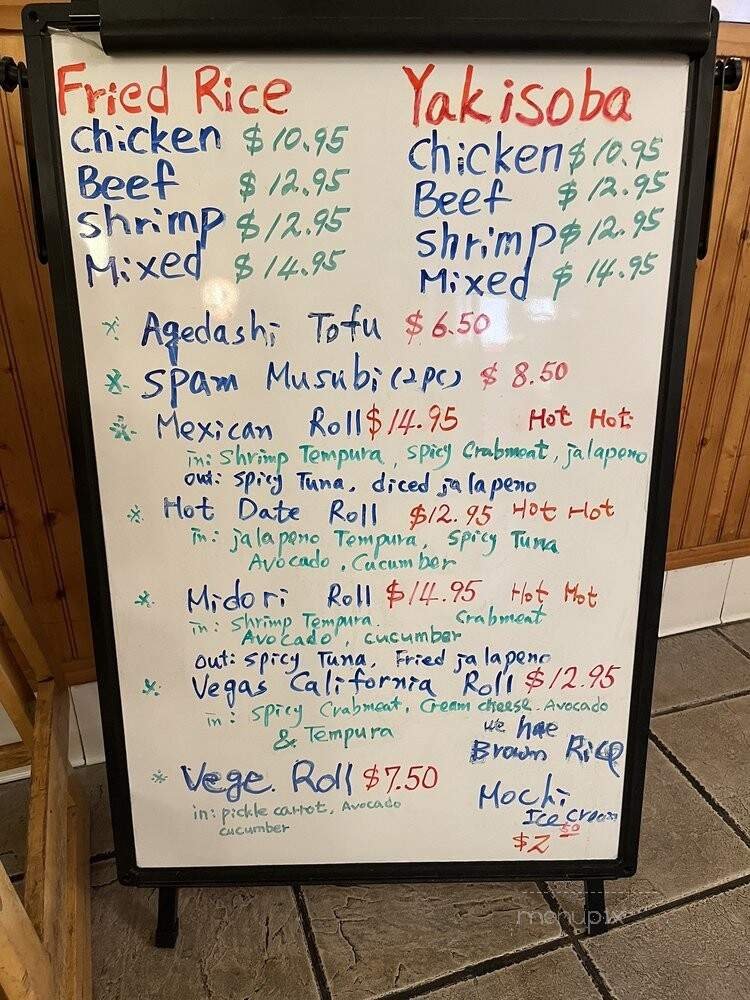 Fried Rice
chicken $10.95
Beef $12.95
shrimp $12.95
Mixed $14.95
Yakisoba
Chicken $10.95
Beef $12.95
shrimp $12.95
Mixed $14.95
* Agedashi Tofu $6.50
* Spam Musubi (2pc) $8.50
* Mexican Roll $14.95 Hot Hot
in: Shrimp Tempura, spicy Crabmeat, jalapeno
out: spicy Tuna, diced jalapeno
* Hot Date Roll $12.95 Hot Hot
in: jalapeno Tempura, spicy Tuna
Avocado, Cucumber
* Midori Roll $14.95 Hot Hot
in: shrimp Tempura. Crabmeat
Avocado, cucumber
out: spicy Tuna, Fried jalapeno
* Vegas California Roll $12.95
in: spicy Crabmeat, Cream cheese. Avocado
& Tempura
we hae
Brown Rice
* Vege. Roll $7.50
in: pickle carrot, Avocado
cucumber
Mochi
Ice Cream
$2 50
menupix